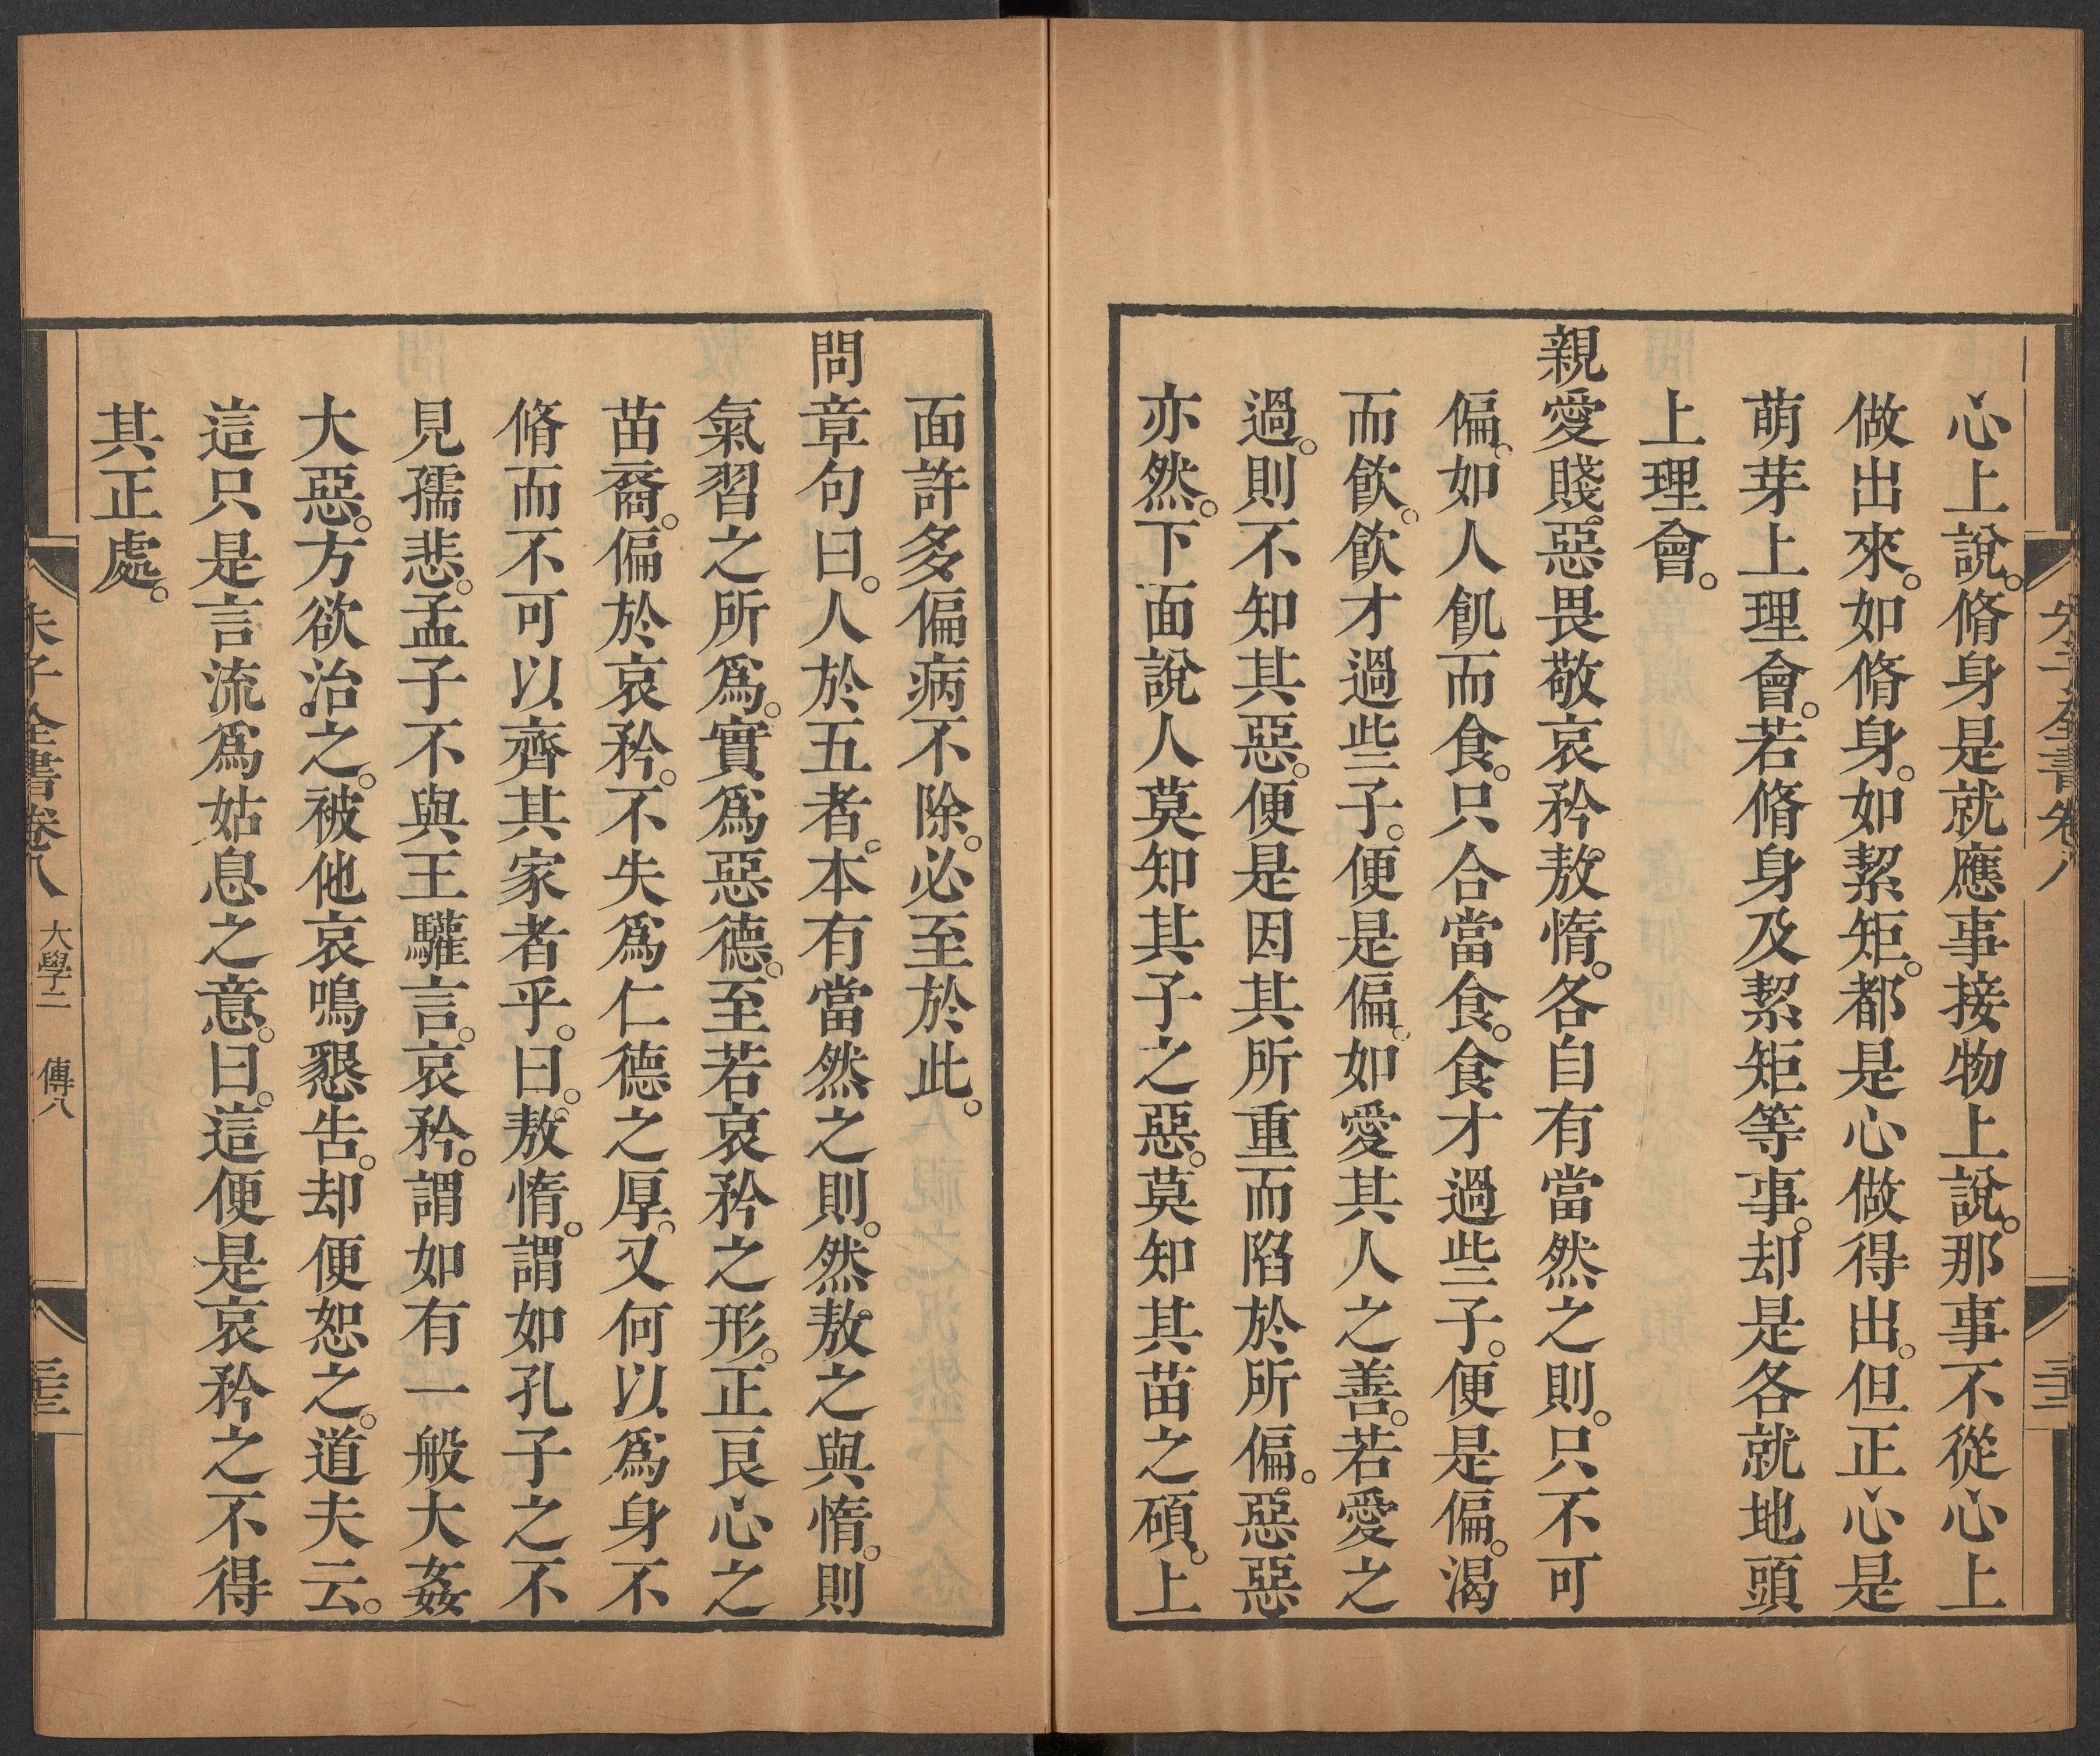 心上說。脩身是就應事接物上說。那事不從心上
做出來。如脩身。如絜矩。都是心做得出。但正心是
萌芽上理會。若脩身及絜矩等事。却是各就地頭
上理會。
親愛賤惡畏敬哀矜敖惰。各自有當然之則。只不可
偏。如人飢而食。只合當食。食才過些子。便是偏。渴
而飲。飲才過些子。便是偏。如愛其人之善。若愛之
過。則不知其惡。便是因其所重而陷於所偏。惡惡
亦然。下面說人莫知其子之惡。莫知其苗之碩。上
面許多偏病不除。必至於此。
問章句曰。人於五者。本有當然之則。然敖之與惰。則
氣習之所爲。實爲惡德。至若哀矜之形。正良心之
苗裔。偏於哀矜。不失爲仁德之厚。又何以爲身不
脩而不可以齊其家者乎。曰。敖惰。謂如孔子之不
見孺悲。孟子不與王驩言。哀矜。謂如有一般大姦
大惡。方欲治之。被他哀鳴懇告。却便恕之。道夫云。
這只是言流爲姑息之意。曰。這便是哀矜之不得
其正處。
朱子全書卷八 大學二 傳八 三十三